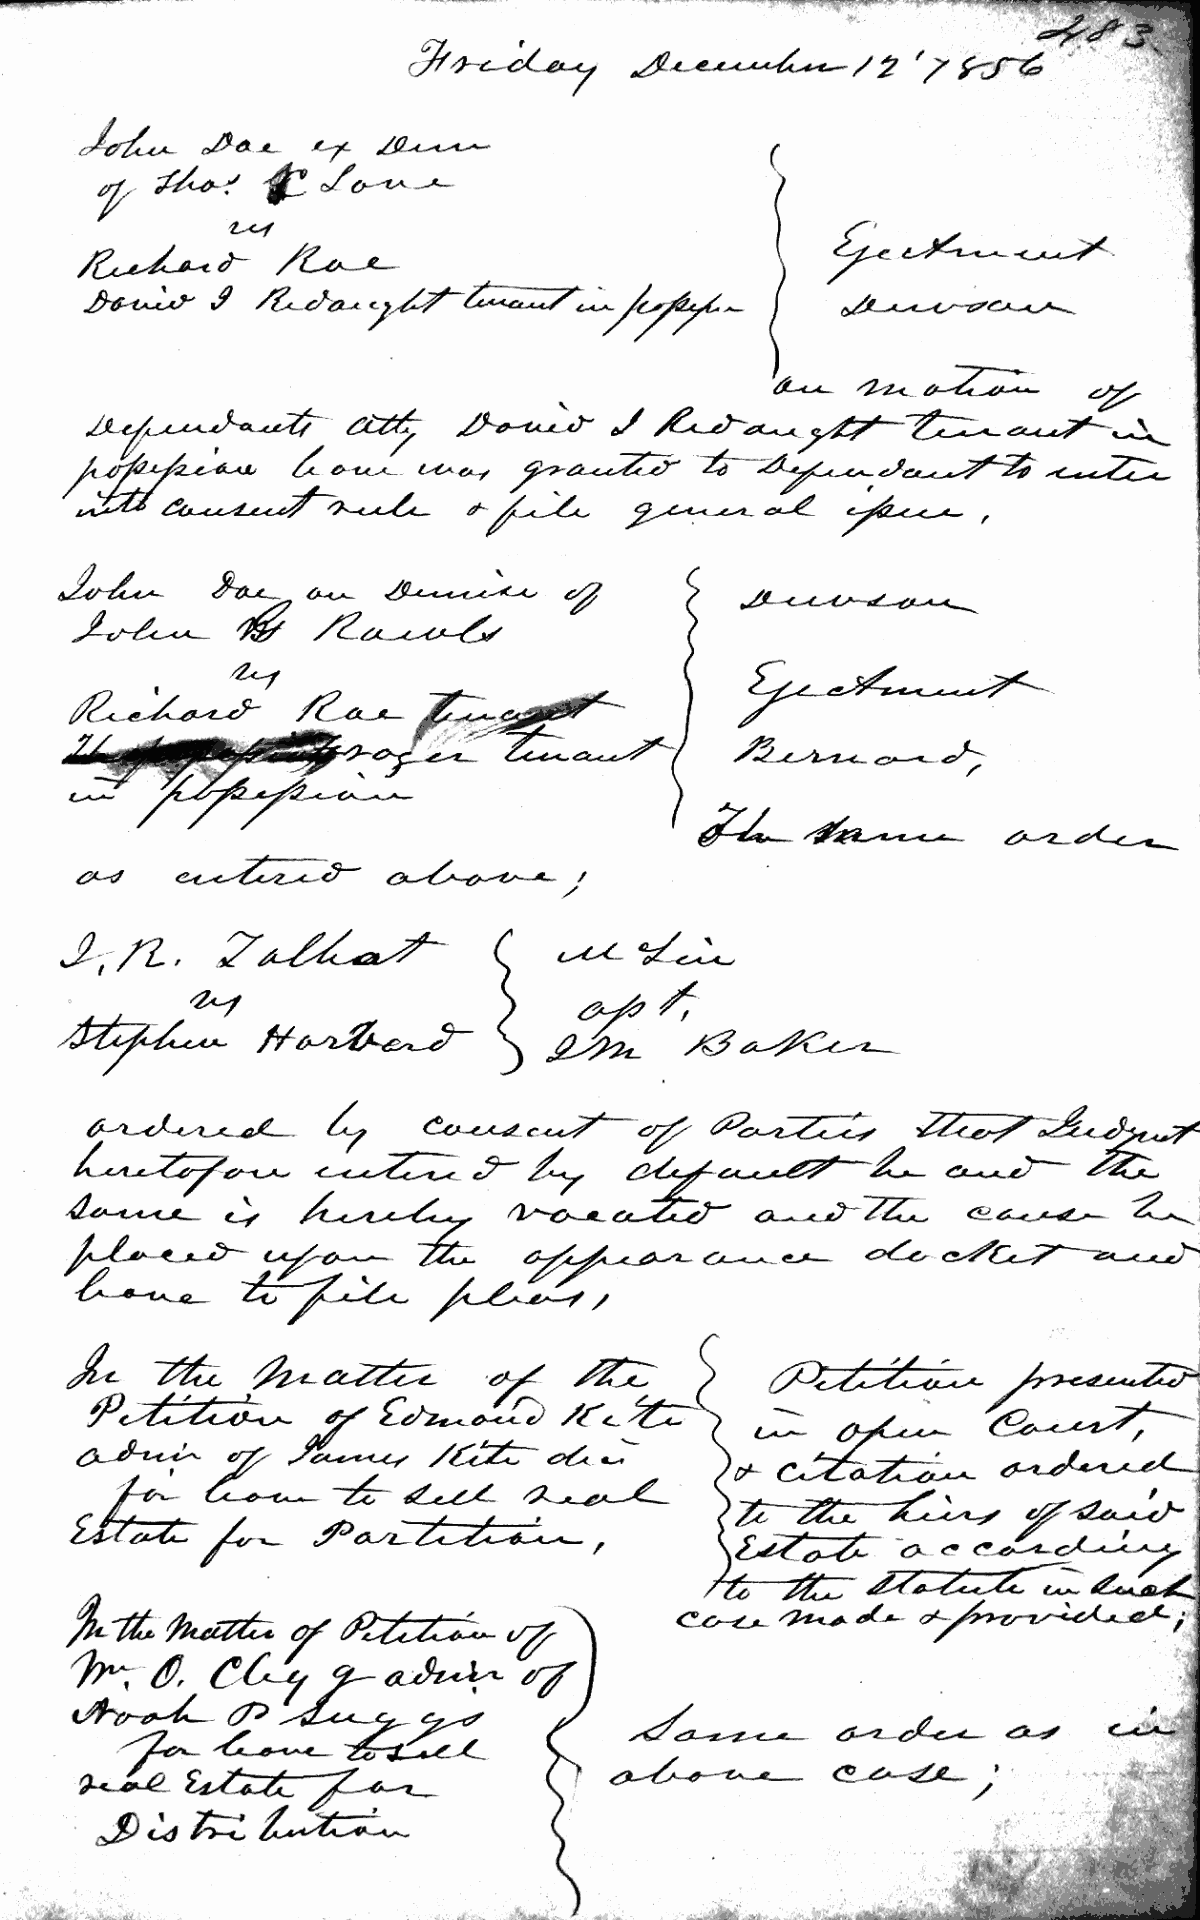 483.
Friday December 12' 1856
John Doe ex Dem
of Thos. C Love
vs
Richard Roe
David I Redaught tenant in possession
Ejectment
Denson
on motion of
Defendants atty David I Redaught tenant in
possession leave was granted to Defendant to enter
into consent rule & file general issue.
John Doe on Demise of
John B Rawls
vs
Richard Roe tenant
tenant
in possession
Denson
Ejectment
Bernard,
The same order
as entered above;
I. R. Talbot
vs
Stephen Harvard
McLin
apt.
I M Baker
ordered by consent of Parties that Judgmt
heretofore entered by default be and the
same is hereby vacated and the cause be
placed upon the appearance docket and
leave to file pleas,
In the Matter of the
Petition of Edmond Kite
admr of James Kite decd
for leave to sell real
Estate for Partition,
Petition presented
in open Court,
& citation ordered
to the heirs of said
Estate according
to the statute in such
case made & provided;
In the Matter of Petition of
Wm. O. Clegg admr of
Noah P Suggs
for leave to sell
real Estate for
Distribution
Same order as in
above case;